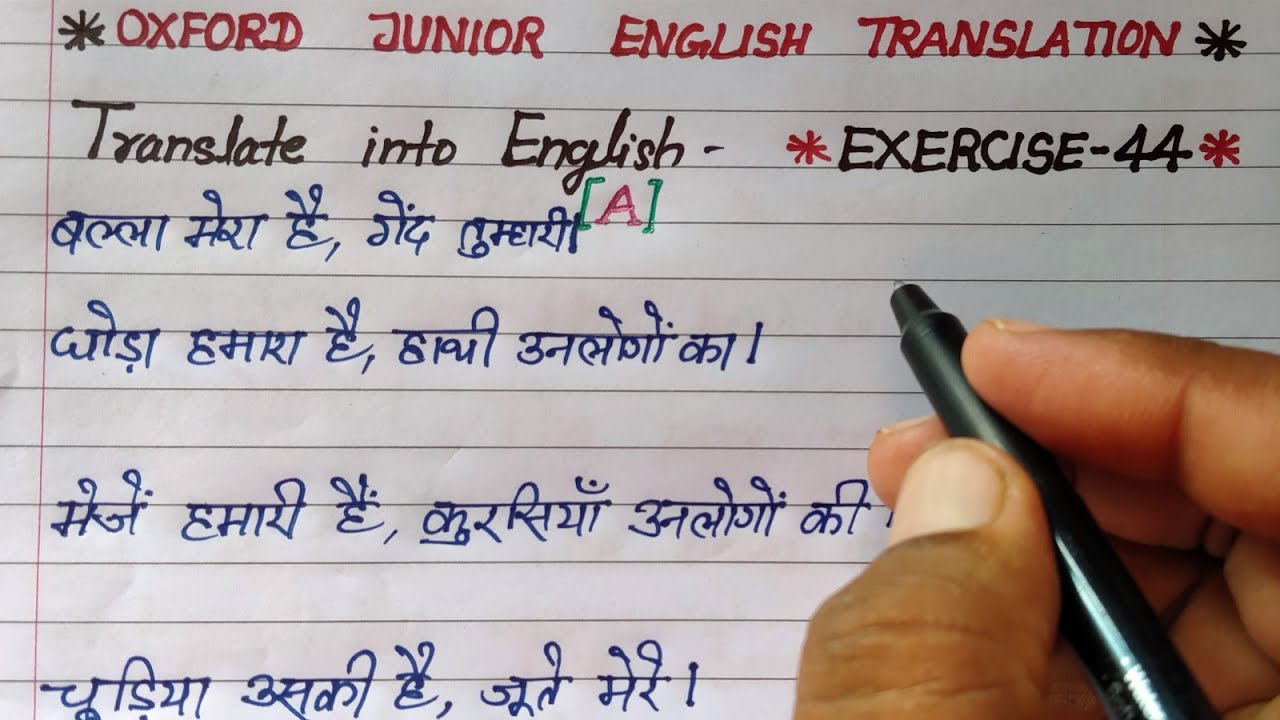 * OXFORD JUNIOR ENGLISH TRANSLATION *
Translate into English - * EXERCISE-44 *
[A]
बल्ला मेरा है, गेंद तुम्हारी।
घोड़ा हमारा है, हाथी उनलोगों का।
मेजें हमारी हैं, कुरसियाँ उनलोगों की ।
चूड़िया उसकी है, जूते मेरे ।